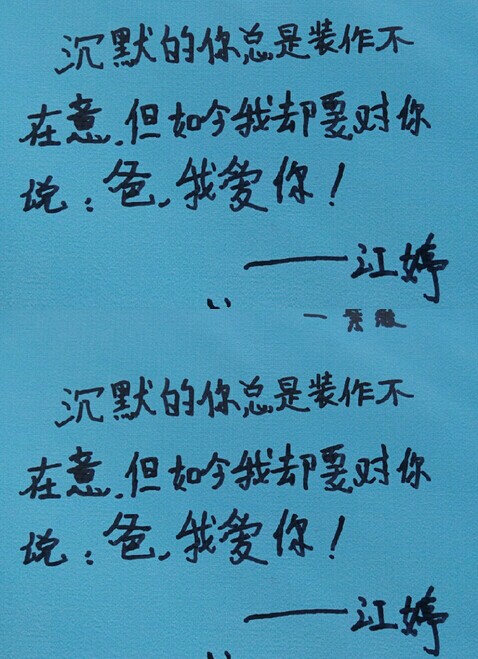 沉默的你总是装作不
在意,但如今我却要对你
说:爸,我爱你!
——江婷
沉默的你总是装作不
在意,但如今我却要对你
说:爸,我爱你!
——江婷